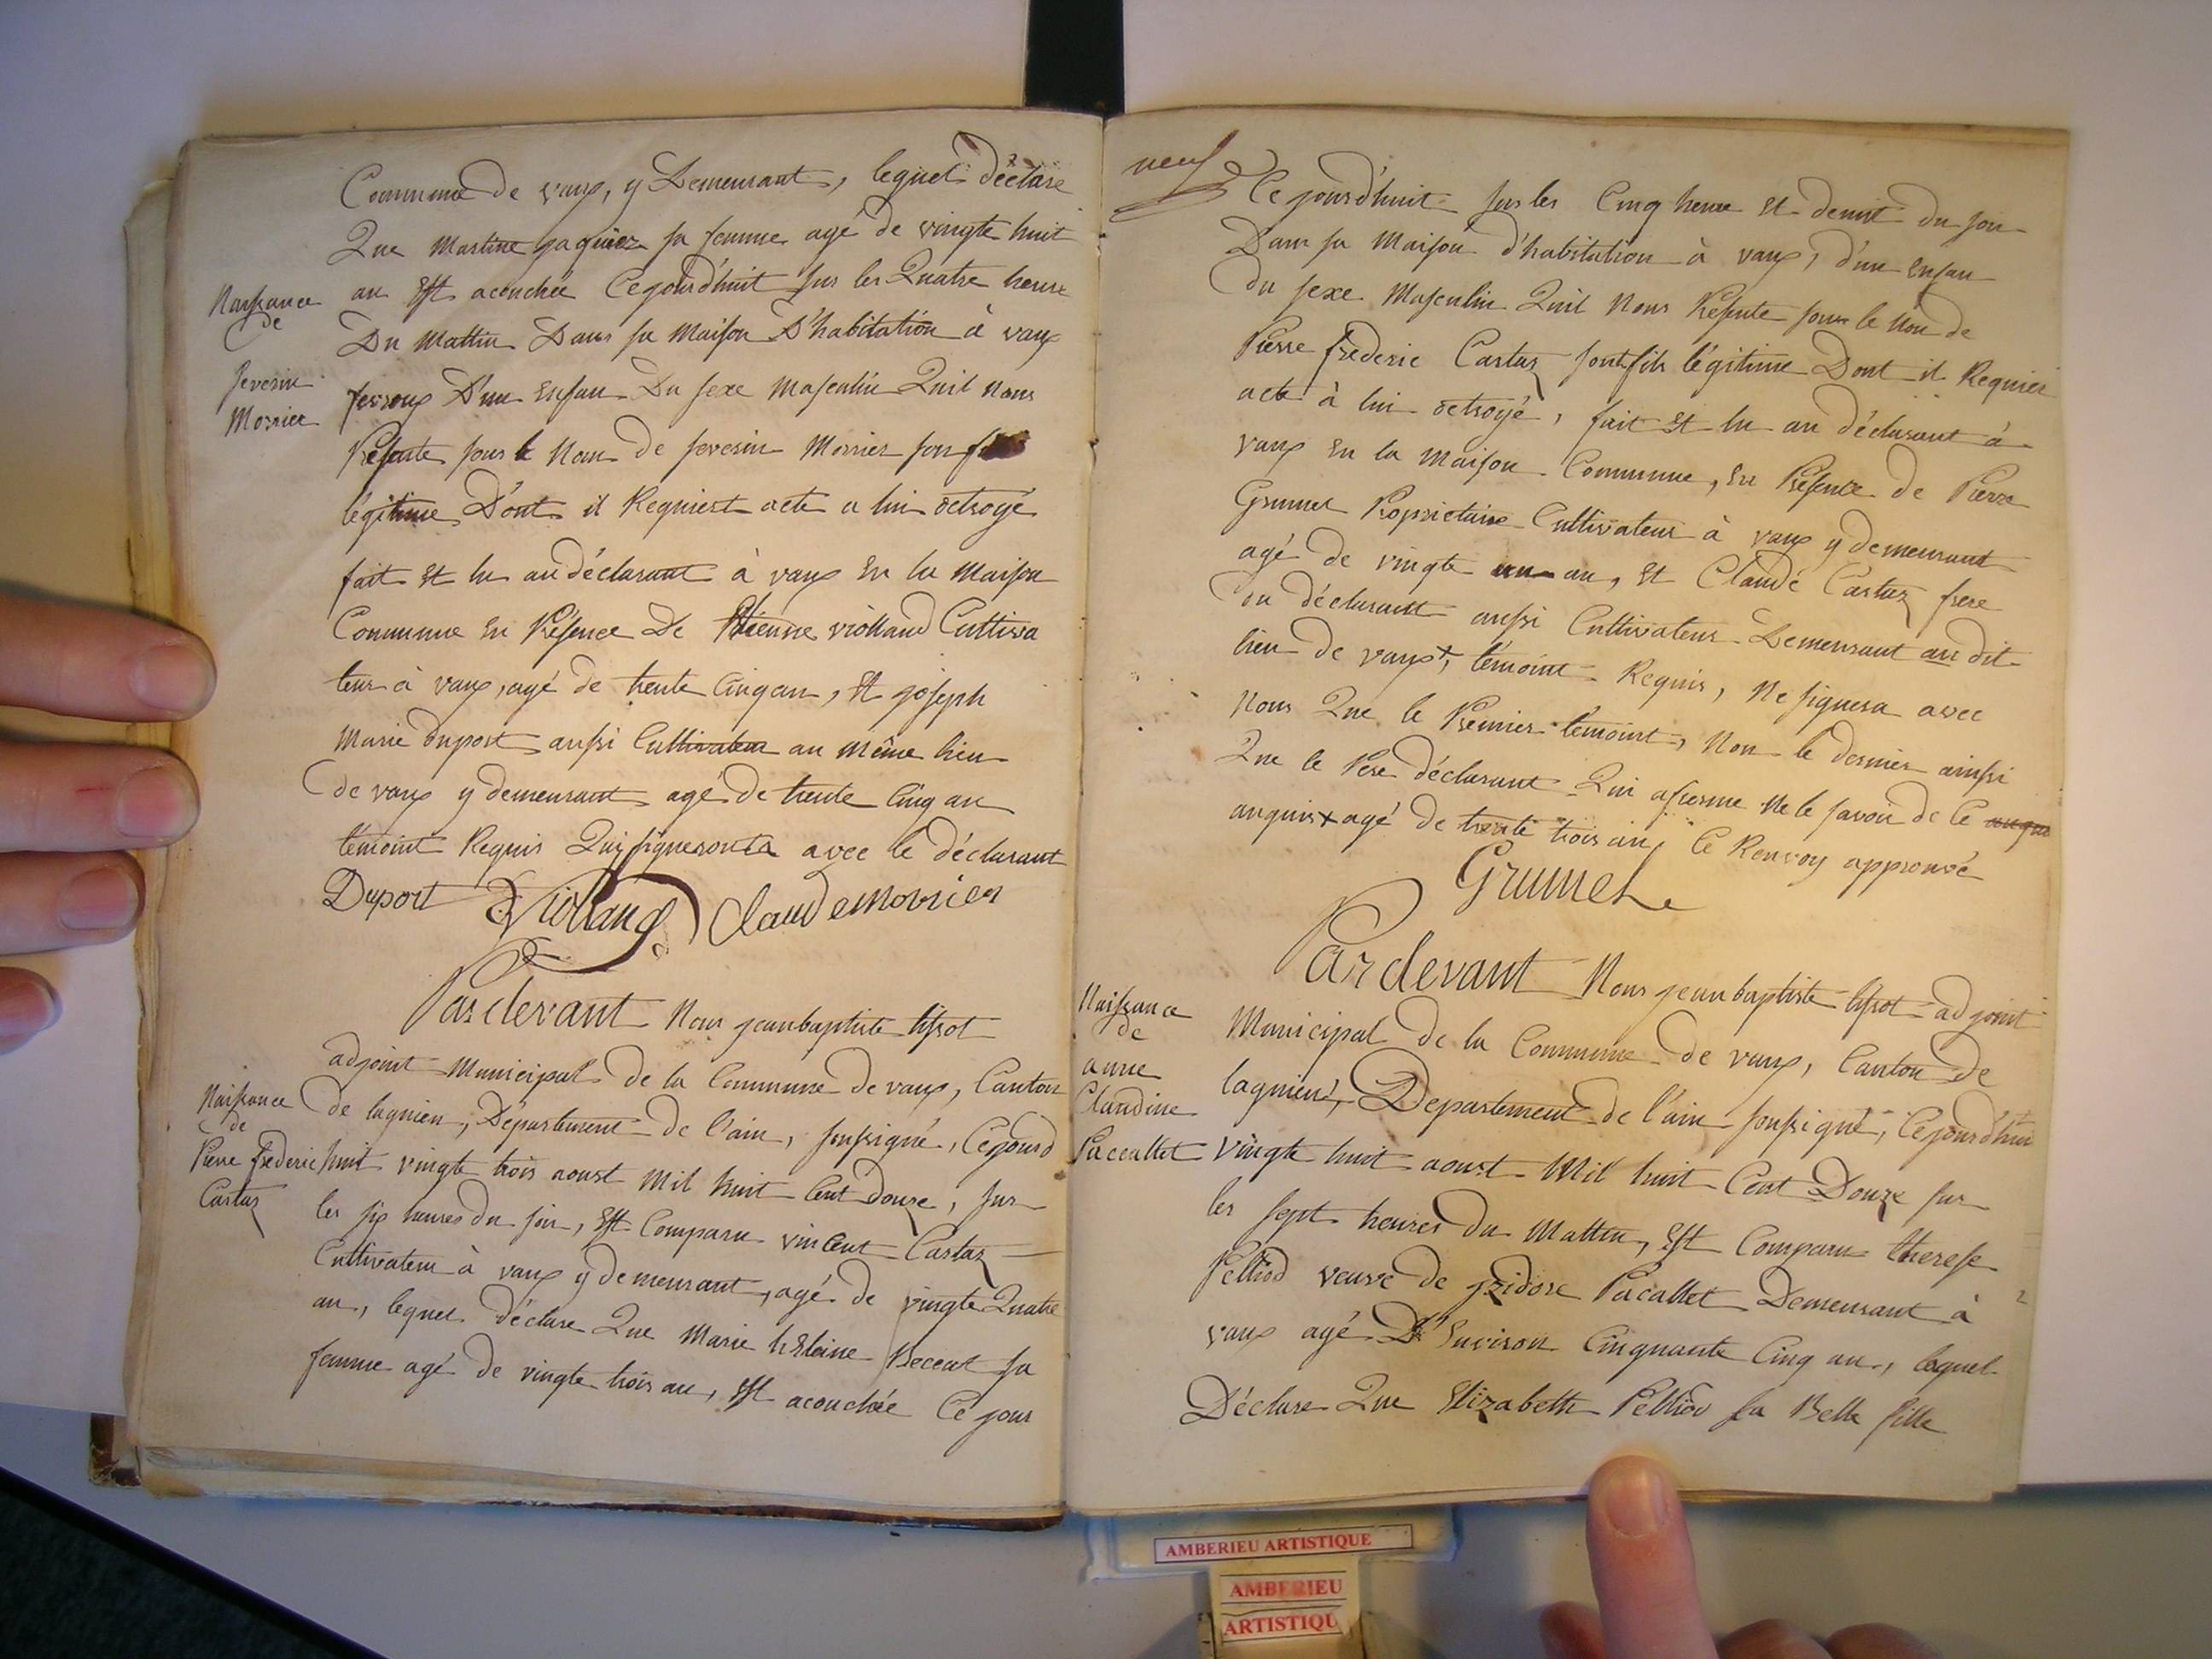 Commune de vaux, y Demeurant, lequel déclare
Que Martine jaquiez sa femme agé de vingte huit
an Est acouchée Cejourd'huit sur les Quatre heure
Du Mattin Dans sa Maison D'habitation à vaux
fevroux D'un Enfan Du sexe Masculin Quil nous
Présente sous le Nom de severin Morrier son
légitime D'ont il Requiert acte a lui octroyé
fait Et lu au déclarant à vaux En la Maison
Commune En Présence De Etienne violland Cultiva
teur à vaux, agé de trente Cinq an, Et joseph
Marie duport aussi Cultivateur au même lieu
De vaux y demeurant agé de trente Cinq an
témoint Requis Qui signeront avec le déclarant
Duport E Violland Claude morrier
Naissance
de
severin
Morrier
Pardevant Nous jean baptiste tissot
adjoint Municipal de la Commune de vaux, Canton
de lagnieu, Département de l'ain, soussigné, Cejourd
huit vingte trois aoust Mil huit Cent douze, sur
les six heures du soir, Est Comparu vincent Castaz
Cultivateur à vaux y demeurant, agé de vingte Quatre
an, lequel déclare Que Marie hElaine Beccat sa
femme agé de vingte trois an, Est acouchée Ce jour
Naissance
de
Pierre frederic
Castaz
neuf
Ce jourd'huit sur les Cinq heure Et demit du soir
Dans sa Maison d'habitation à vaux, d'un Enfan
du sexe Masculin Quil Nous Présente sous le Nom de
Pierre frederic Castaz sont fils légitime Dont il Requier
acte à lui octroyé, fait Et lu au déclarant à
vaux En la Maison Commune, En Présence de Pierre
Grumet Propriétaire Cultivateur à vaux y demeurant
agé de vingte un an, Et Claude Castaz frere
du déclarant aussi Cultivateur Demeurant au dit
lieu de vaux+, témoint Requis, Ne signera avec
Nous Que le Premier témoint, Non le dernier ainsi
Que le Pere déclarant Qui afirme Ne le savoir de Ce
anquis + agé de trente trois an, Ce Renvoy approuvé
Grumet
Pardevant Nous jean baptiste tissot adjoint
Municipal de la Commune de vaux, Canton de
lagnieu, Département de l'ain soussigné, Cejourd'hui
vingte huit aoust Mil huit Cent Douze sur
les sept heures du Mattin, Est Comparu therese
Pelliod veuve de jzidore Pacallet Demeurant à
vaux agé D'Environ Cinquante Cinq an, lequel
Déclare Que Elizabeth Pelliod sa Belle fille
Naissance
de
anne
Claudine
Paccallet
AMBERIEU ARTISTIQUE
AMBERIEU
ARTISTIQU